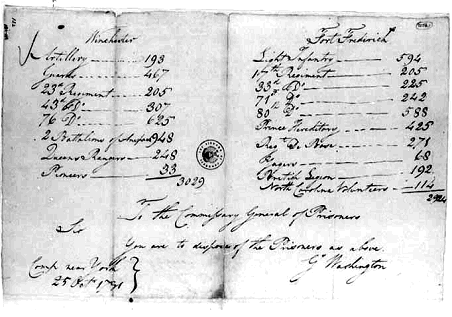 Winchester
Artillery 193
Guards 467
23d Regiment 205
43d Do 307
76 Do 625
2 Battalions of Anspach 948
Queens Rangers 248
Pioneers 33
3029
Fort Frederick
Light Infantry 594
17th Regiment 205
33d Do 225
71st Do 242
80th Do 588
Prince Hereditary 425
Regt De Bose 271
Yagers 68
British Legion 192
North Carolina Volunteers 114
2924
To the Commissary General of Prisoners
Sir
You are to dispose of the Prisoners as above.
Go Washington
Camp near York
25 Octr 1781